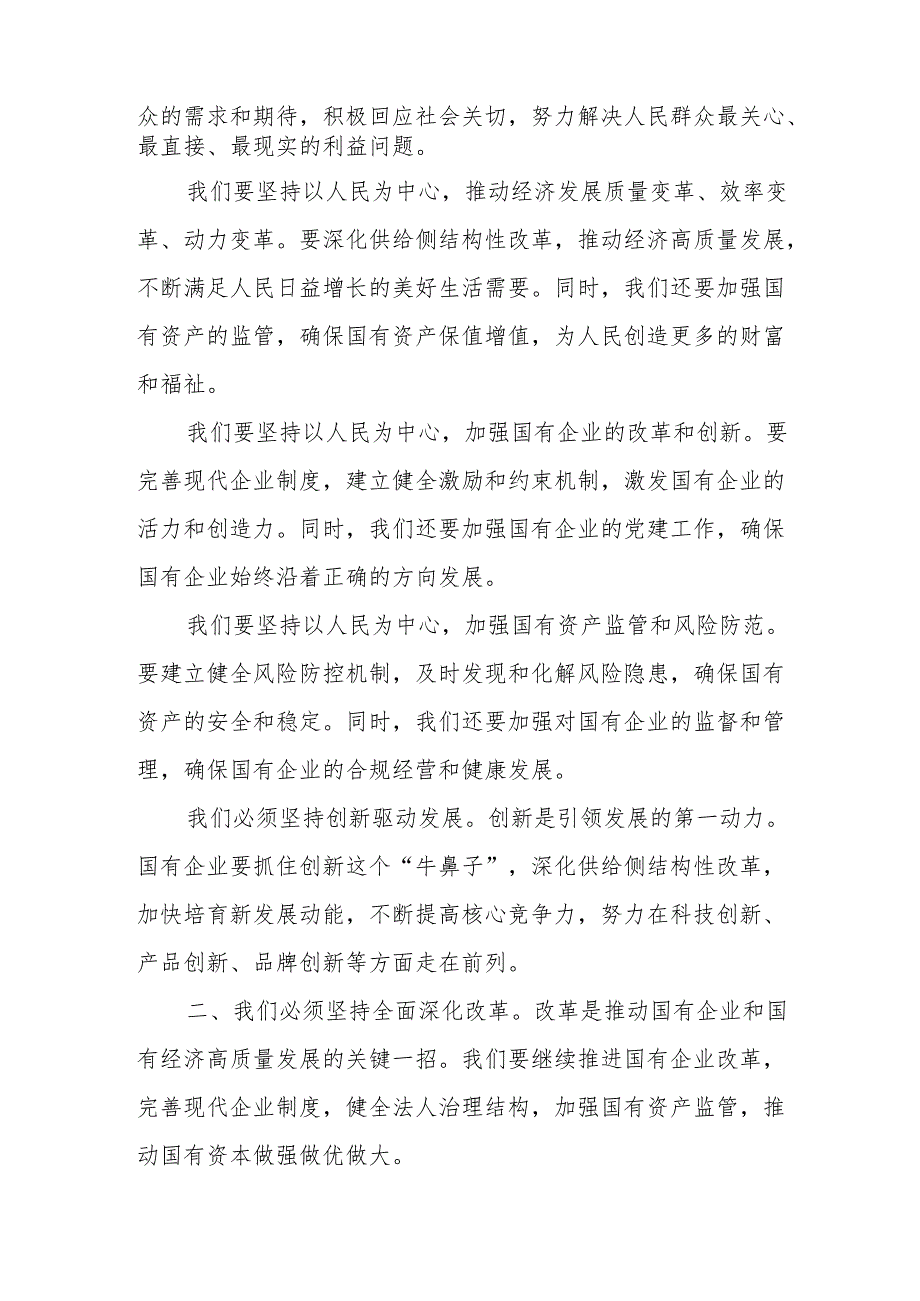 众的需求和期待，积极回应社会关切，努力解决人民群众最关心、
最直接、最现实的利益问题。
我们要坚持以人民为中心，推动经济发展质量变革、效率变
革、动力变革。要深化供给侧结构性改革，推动经济高质量发展，
不断满足人民日益增长的美好生活需要。同时，我们还要加强国
有资产的监管，确保国有资产保值增值，为人民创造更多的财富
和福祉。
我们要坚持以人民为中心，加强国有企业的改革和创新。要
完善现代企业制度，建立健全激励和约束机制，激发国有企业的
活力和创造力。同时，我们还要加强国有企业的党建工作，确保
国有企业始终沿着正确的方向发展。
我们要坚持以人民为中心，加强国有资产监管和风险防范。
要建立健全风险防控机制，及时发现和化解风险隐患，确保国有
资产的安全和稳定。同时，我们还要加强对国有企业的监督和管
理，确保国有企业的合规经营和健康发展。
我们必须坚持创新驱动发展。创新是引领发展的第一动力。
国有企业要抓住创新这个“牛鼻子”，深化供给侧结构性改革，
加快培育新发展动能，不断提高核心竞争力，努力在科技创新、
产品创新、品牌创新等方面走在前列。
二、我们必须坚持全面深化改革。改革是推动国有企业和国
有经济高质量发展的关键一招。我们要继续推进国有企业改革，
完善现代企业制度，健全法人治理结构，加强国有资产监管，推
动国有资本做强做优做大。